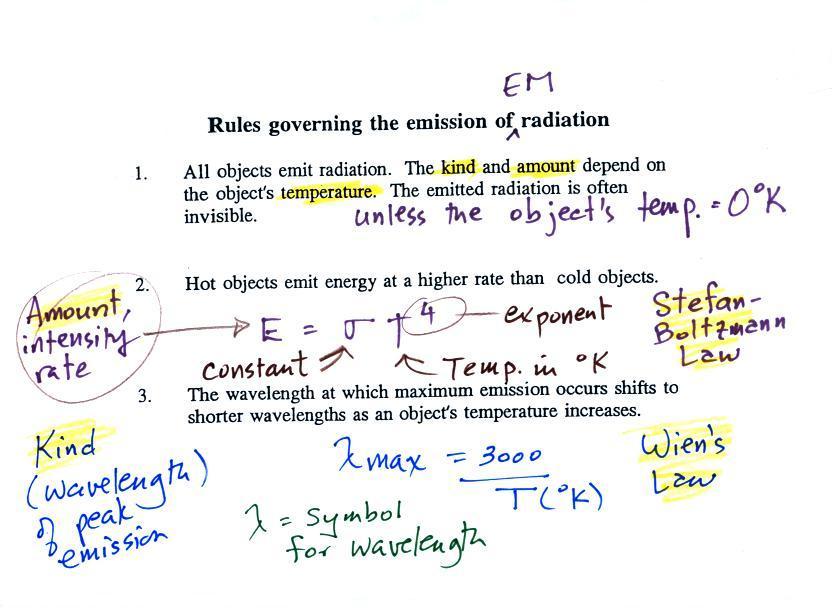 EM
Rules governing the emission of ^ radiation
1. All objects emit radiation. The kind and amount depend on
the object's temperature. The emitted radiation is often
invisible. unless the object's temp. = 0°K
2. Hot objects emit energy at a higher rate than cold objects.
Amount,
intensity
rate
E = σ T⁴
exponent
constant
Temp. in °K
Stefan-
Boltzmann
Law
3. The wavelength at which maximum emission occurs shifts to
shorter wavelengths as an object's temperature increases.
Kind
(wavelength)
of peak
emission
λmax = 3000
T(°K)
Wien's
Law
λ = symbol
for wavelength